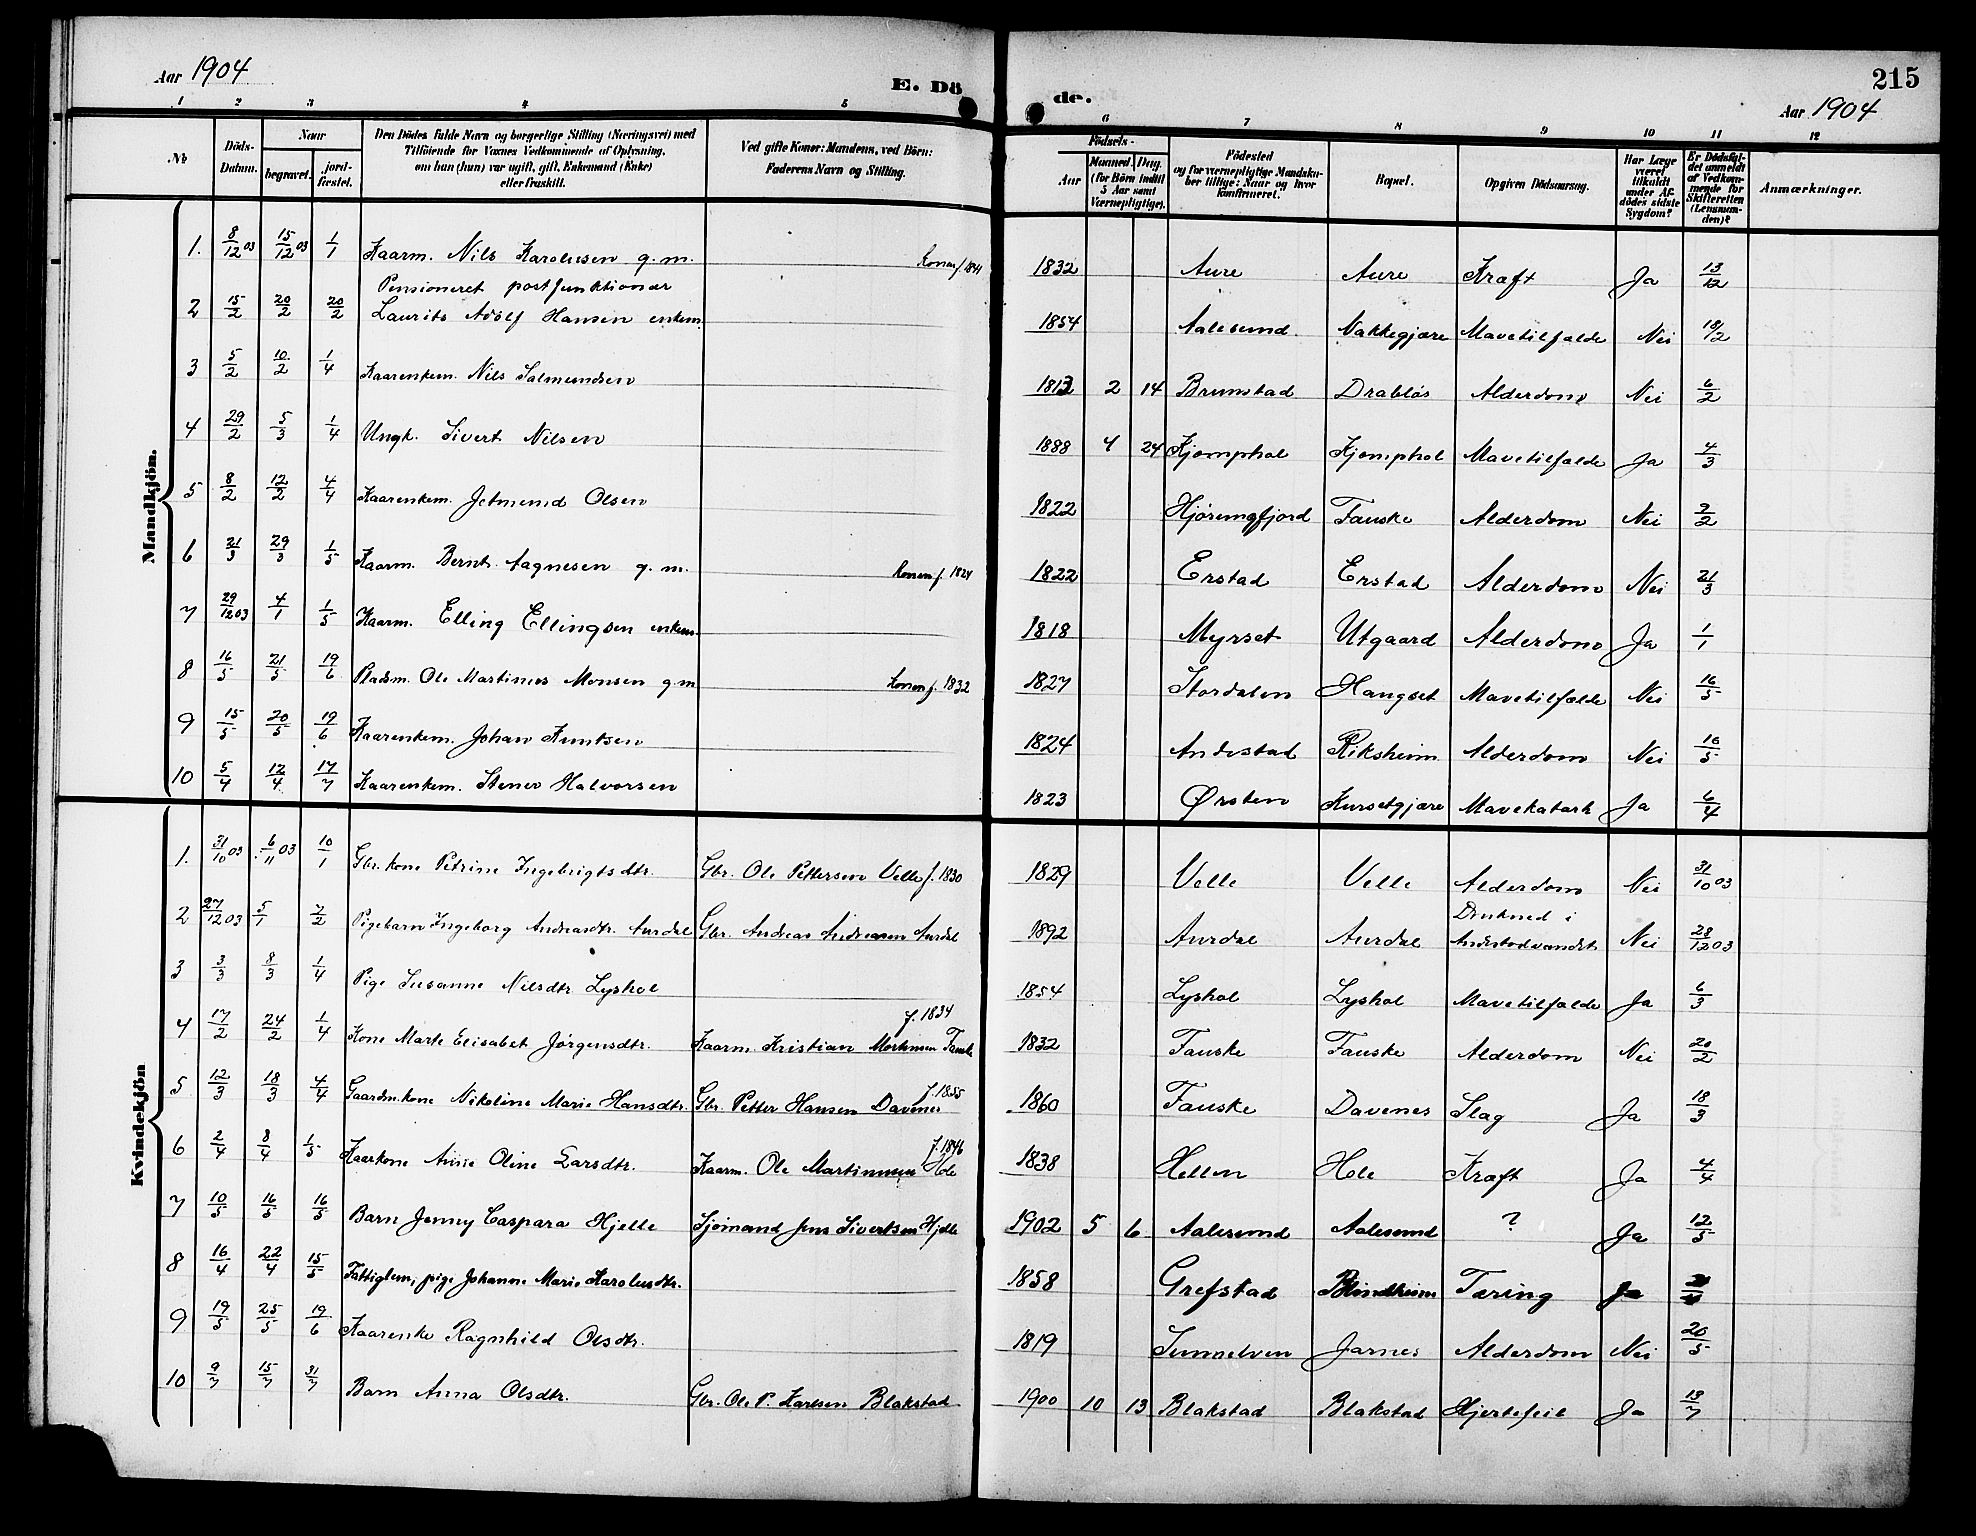 Aar 1904
E. Dö
de.
215
Aar 1904
1 2 3 4 5 6 7 8 9 10 11 12
No
Döds-Datum.
Naar
begravet.
jord-fæstet.
Den Dödes fulde Navn og borgerlige Stilling (Næringsvei) med
Tilföiende for Voxnes Vedkommende af Oplysning,
om han (hun) var ugift, gift, Enkemand (Enke)
eller fraskilt.
Ved gifte Koner: Mandens, ved Börn:
Faderens Navn og Stilling.
Födsels-
Aar
Maaned. Dag.
(for Börn indtil
5 Aar samt
Værnepligtige).
Födested
og for værnepligtige Mandskaber tillige: Naar og hvor konfirmeret.
Bopæl.
Opgiven Dödsaarsag.
Har Læge været tilkaldt under Afdödes sidste Sygdom?
Er Dödsfaldet anmeldt af Vedkommende for Skifteretten (Lensmanden)?
Anmærkninger.
Mandkjön.
1. 8/12 03 15/12 03 1/1 Kaarm. Nils Karolusen g.m. Konen f. 1841 1832 Aure Aure Kræft Ja 13/12
Pensioneret postfunktionær
2 15/2 20/2 20/2 Laurits Adolf Hansen enkem. 1854 Aalesund Nakkegjære Mavetilfælde Nei 18/2
3 5/2 10/2 1/4 Kaarenkem. Nils Salmundsen 1813 2 14 Brunstad Drabløs Alderdom Nei 6/2
4 29/2 5/3 1/4 Ungk. Sivert Nilsen 1888 4 24 Kjømphol Kjømphol Mavetilfælde Ja 4/3
5 8/2 12/2 4/4 Kaarenkem. Jetmund Olsen 1822 Hjørungfjord Fauske Alderdom Nei 2/2
6 21/3 29/3 1/5 Kaarm. Bernt Aagnesen g.m. Konen f. 1824 1822 Erstad Erstad Alderdom Nei 21/3
7 29/12 03 4/1 1/5 Kaarm. Elling Ellingsen enkem. 1818 Myrset Utgaard Alderdom Ja 1/1
8 16/5 21/5 19/6 Pladsm. Ole Martinus Monsen g.m Konen f. 1832 1827 Stordalen Haugset Mavetilfælde Nei 16/5
9 15/5 20/5 19/6 Kaarenkem. Johan Knutsen 1824 Andestad Riksheim Alderdom Nei 16/5
10 5/4 12/4 17/7 Kaarenkem. Stener Halvorsen 1823 Ørsten Kursetgjære Mavekatarh Ja 6/4
Kvindekjön
1. 31/10 03 6/11 03 10/1 Gbr. kone Petrine Ingebrigtsdtr. Gbr. Ole Pettersen Velle f. 1830 1829 Velle Velle Alderdom Nei 31/10 03
2 27/12 03 5/1 7/2 Pigebarn Ingeborg Andreasdtr. Aurdal Gbr. Andreas Andreasen Aurdal 1892 Aurdal Aurdal Drukned i Andestadvandet Nei 28/12 03
3 3/3 8/3 1/4 Pige Susanne Nilsdtr Lyshol 1854 Lyshol Lyshol Mavetilfælde Ja 6/3
4 17/2 24/2 1/4 Kone Marte Elisabet Jørgensdtr. Kaarm. Kristian Fauske f. 1834 1832 Fauske Fauske Alderdom Nei 20/2
5 12/3 18/3 4/4 Gaardm.kone Nikoline Marie Hansdtr. Gbr. Petter Hansen Davenes f. 1855 1860 Fauske Davenes Slag Ja 18/3
6 2/4 8/4 1/5 Kaarkone Anne Oline Larsdtr. Kaarm. Ole Martinusen Hole f. 1846 1838 Hellen Hole Kræft Ja 4/4
7 10/5 16/5 16/5 Barn Jenny Caspara Hjelle Sjømand Jens Sivertsen Hjelle 1902 5 6 Aalesund Aalesund ? Ja 12/5
8 16/4 22/4 15/5 Fattiglem, pige Johanne Marie Karolusdtr. 1858 Grefstad Blindheim Tæring Ja
9 19/5 25/5 19/6 Kaarenke Ragnhild Olsdtr. 1819 Sunnelven Jarnes Alderdom Nei 20/5
10 9/7 15/7 31/7 Barn Anna Olsdtr. Gbr. Ole P. Karlsen Blakstad 1900 10 13 Blakstad Blakstad Hjertefeil Ja 13/7